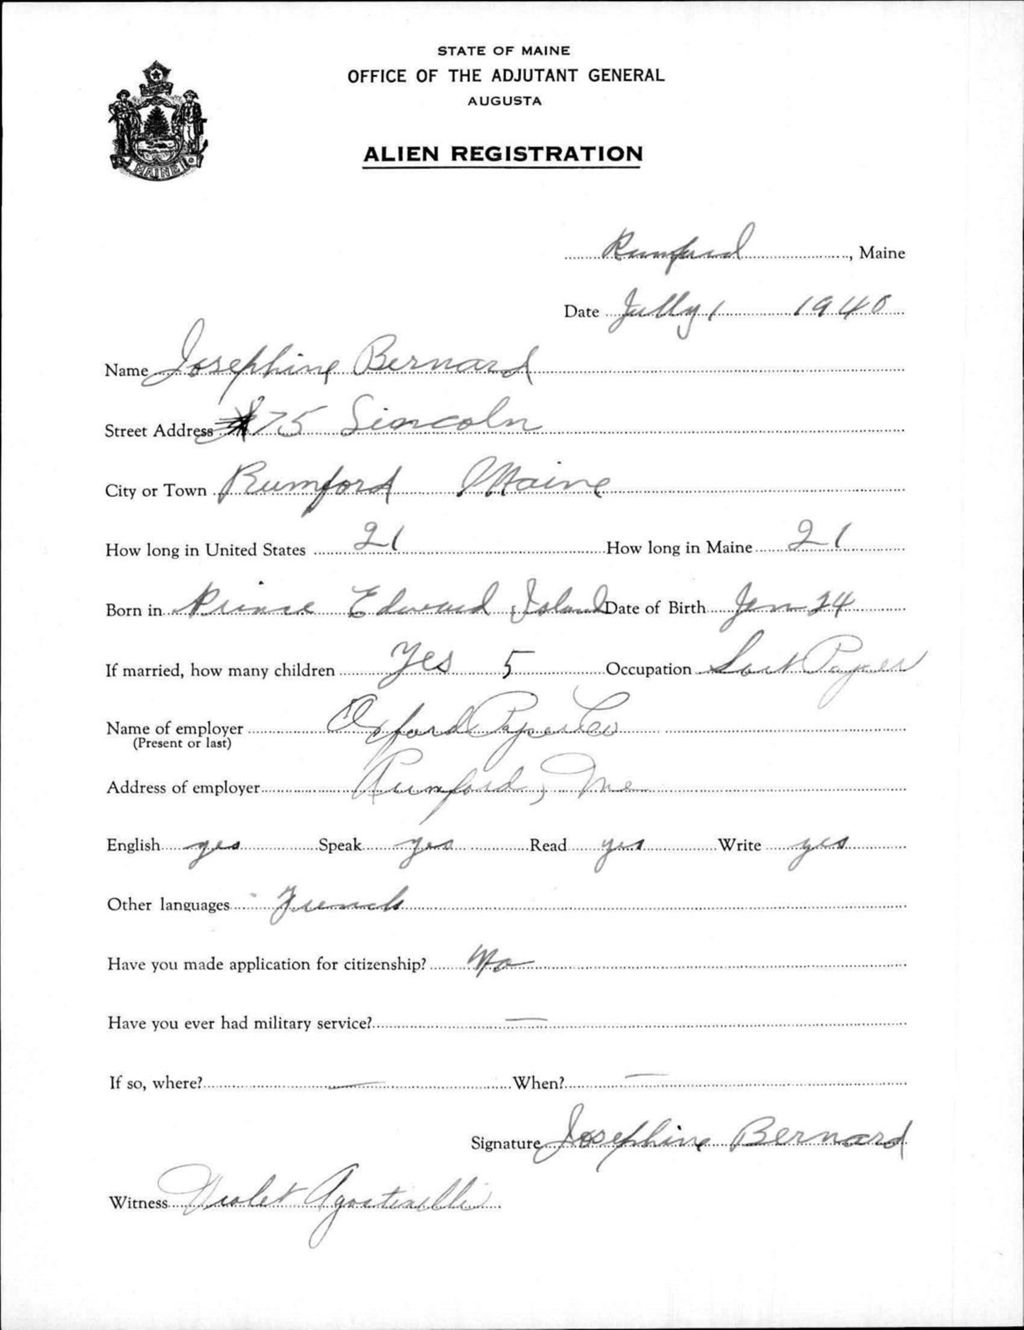 STATE OF MAINE
OFFICE OF THE ADJUTANT GENERAL
AUGUSTA
ALIEN REGISTRATION
MAINE
Rumford, Maine
Date Jully 1 1940
Name Josephine Bernard
Street Address 75 Lincoln
City or Town Rumford Maine
How long in United States 21 How long in Maine 21
Born in Prince Edward Island Date of Birth Jan 24
If married, how many children Yes 5 Occupation Payer
Name of employer Oxford Paper Co
(Present or last)
Address of employer Rumford, Me
English yes Speak yes Read yes Write yes
Other languages French
Have you made application for citizenship? No
Have you ever had military service? —
If so, where? — When? —
Signature Josephine Bernard
Witness Violet Agostinelli